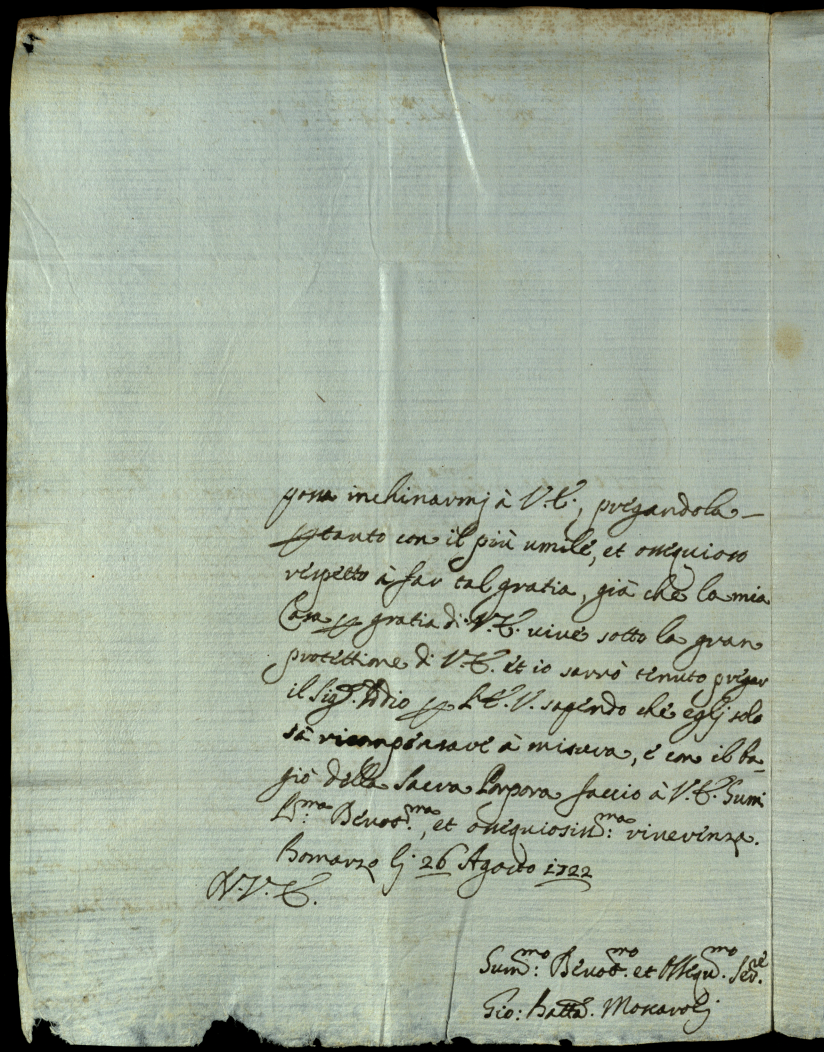 possa inchinarmj à V.E., pregandola
ptanto con il più umile, et ossequioso
rispetto à far tal gratia, già che la mia
Casa p gratia di V.E. vive sotto la gran
protettione di V.E. et io sarrò tenuto pregar
il Sigr. Iddio p l'E.V. sapendo che eglj solo
sà ricompensare à misura, e con il ba-
gio della Sacra Porpora faccio à V.E. Humi
lma Devotma, et ossequiosissma riverenza.
Bomarzo lj 26 Agosto 1722
D.V.E.
Hummo: Devotmo. et Ossequmo. Serve.
Gio: Batta. Moscarolj